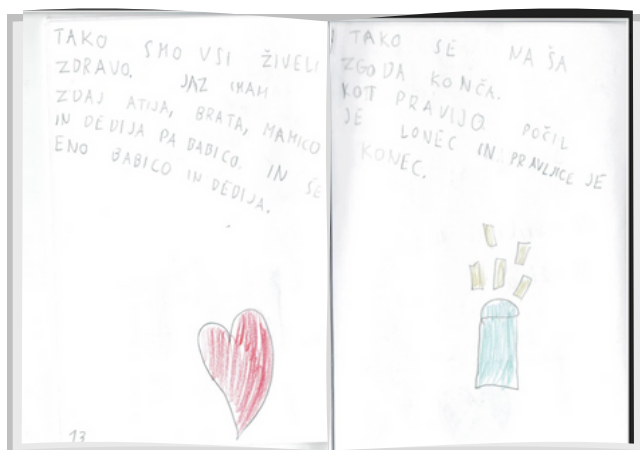 TAKO SMO VSI ŽIVELI
ZDRAVO. JAZ IMAM
ZDAJ ATIJA, BRATA, MAMICO
IN DEDIJA PA BABICO. IN ŠE
ENO BABICO IN DEDIJA.
13
TAKO SE NAŠA
ZGODA KONČA.
KOT PRAVIJO POČIL
JE LONEC IN PRAVLJICE JE
KONEC.